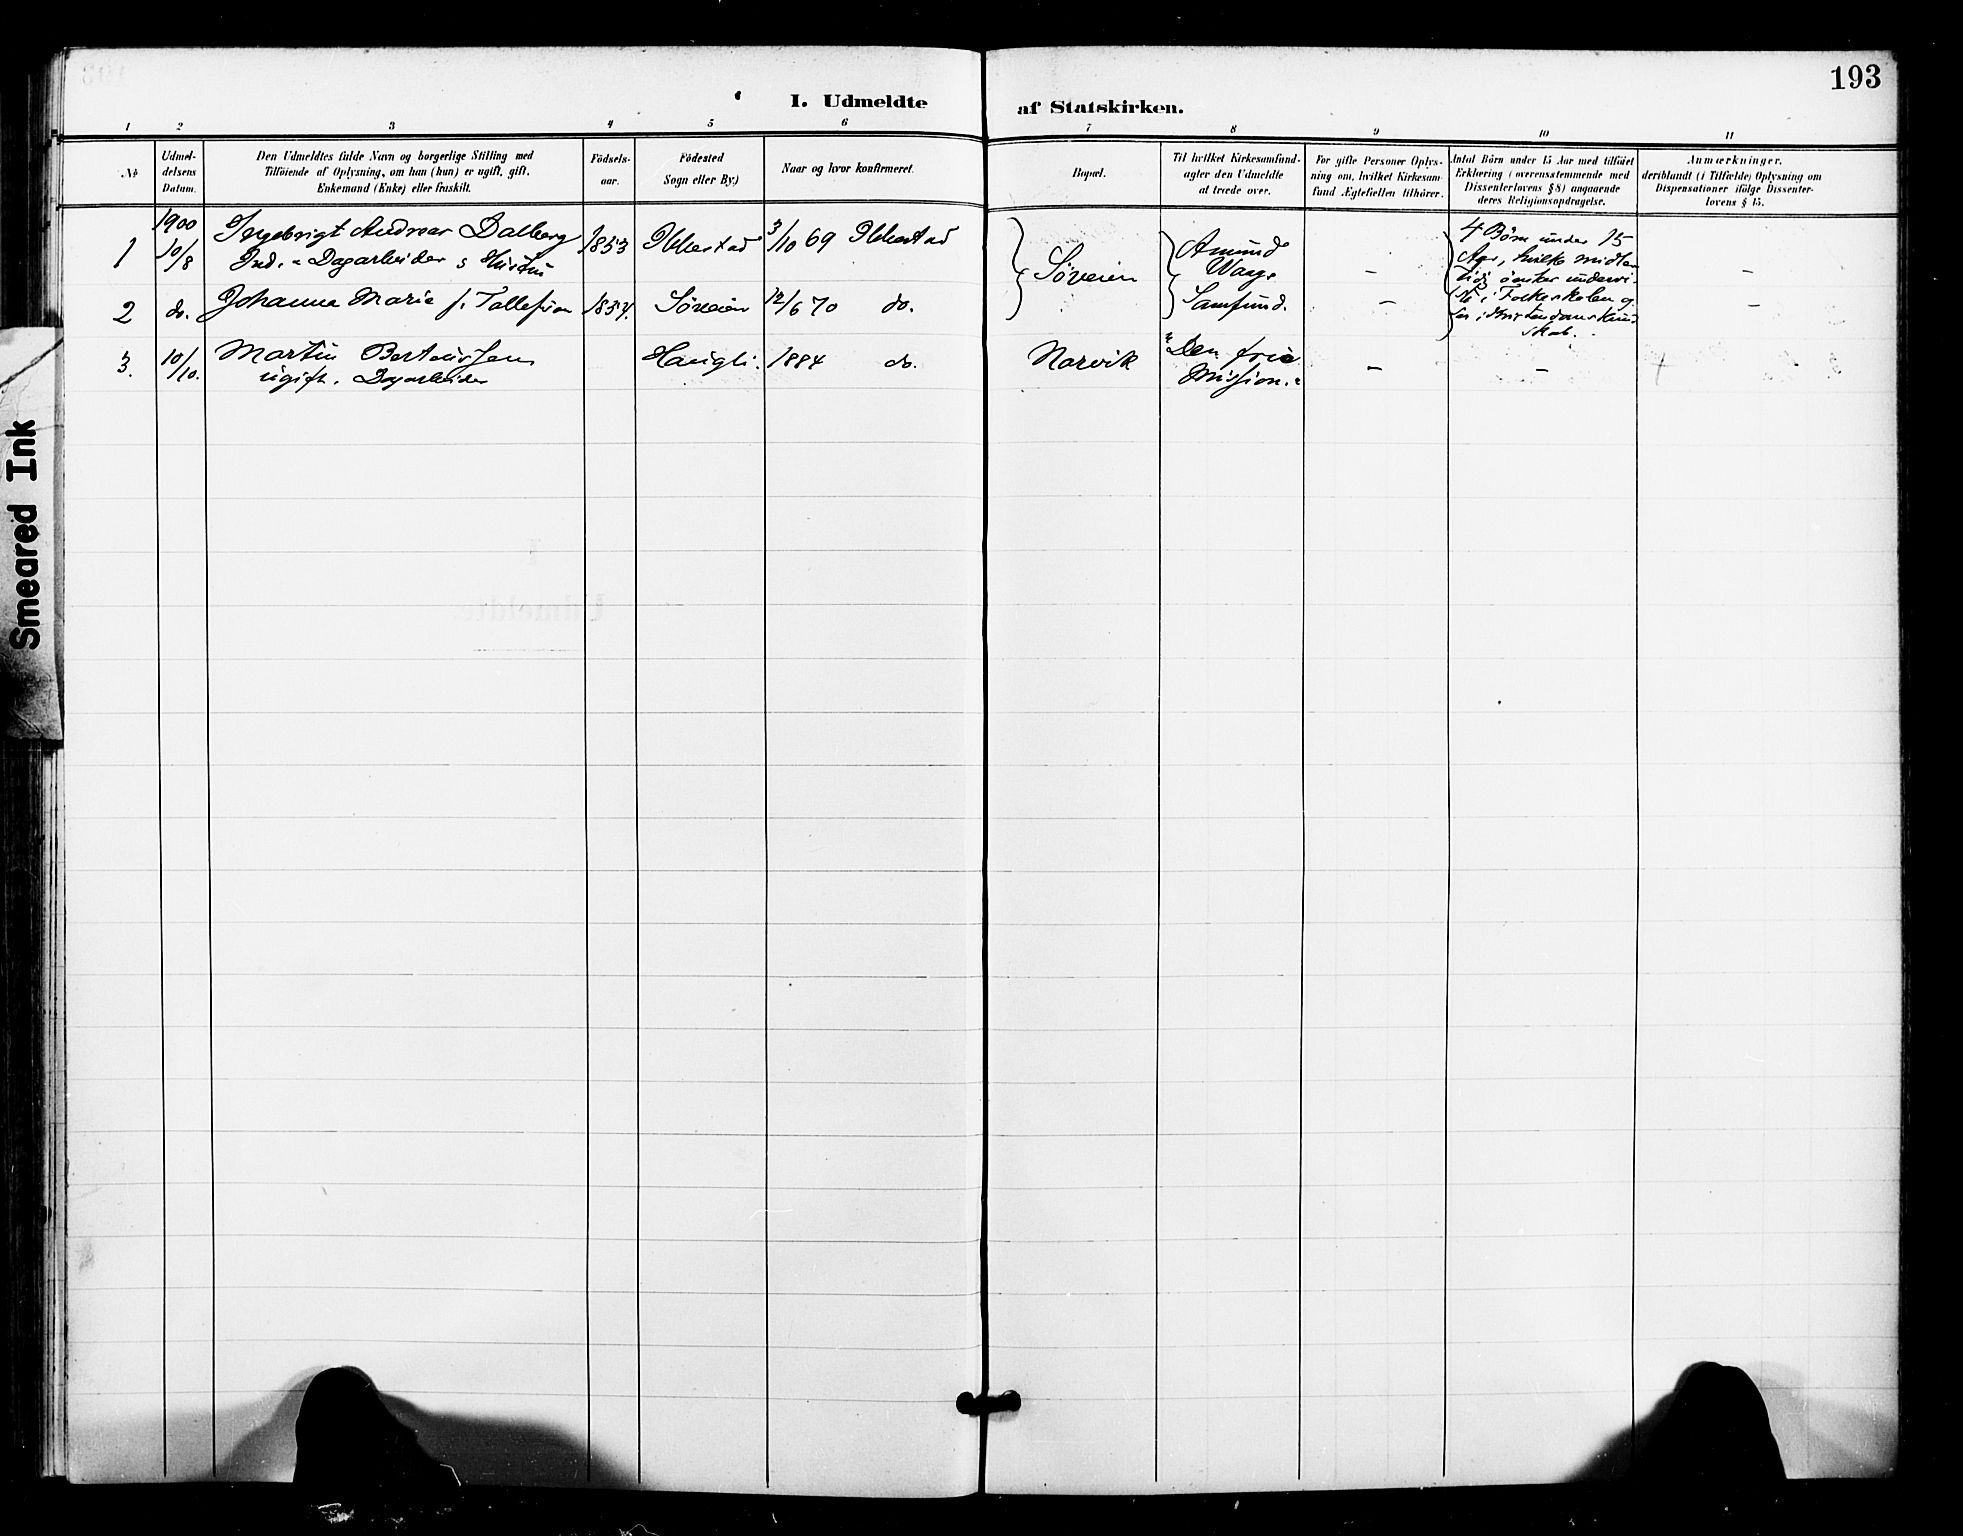 193
I. Udmeldte af Statskirken.
1 2 3 4 5 6 7 8 9 10 11
No
Udmel-
delsens
Datum.
Den Udmeldtes fulde Navn og borgerlige Stilling med
Tilföiende af Oplysning, om han (hun) er ugift, gift,
Enkemand (Enke) eller fraskilt.
Födsels-
aar.
Födested
Sogn eller By.)
Naar og hvor konfirmeret.
Bopæl.
Til hvilket Kirkesamfund-
agter den Udmeldte
at træde over.
For gifte Personer Oplys-
ning om, hvilket Kirkesam-
fund Ægtefællen tilhörer.
Antal Börn under 15 Aar med tilföiet
Erklæring (overensstemmende med
Dissenterlovens § 8) angaaende
deres Religionsopdragelse.
Anmærkninger,
deriblandt (i Tilfælde) Oplysning om
Dispensationer ifölge Dissenter-
lovens § 15.
1900
1 10/8 Ingebrigt Andreas Dalberg 1853 Ibbestad 3/10 69 Ibbestad
Ind. - Dagarbeider & Hustru
Søveien
Amund
Waage
Samfund.
4 Børn under 15
Aar, hvilke midler
tidig ønskes undervi
i Folkeskolen og
i Kristendomskund
skab.
2 do. Johanne Marie f. Tollefsen 1854. Søveien 12/6 70 do.
3. 10/10. Martin Berteussen Haugli. 1884 do. Narvik "Den frie
ugift. Dagarbeider Mission."
Smeared Ink